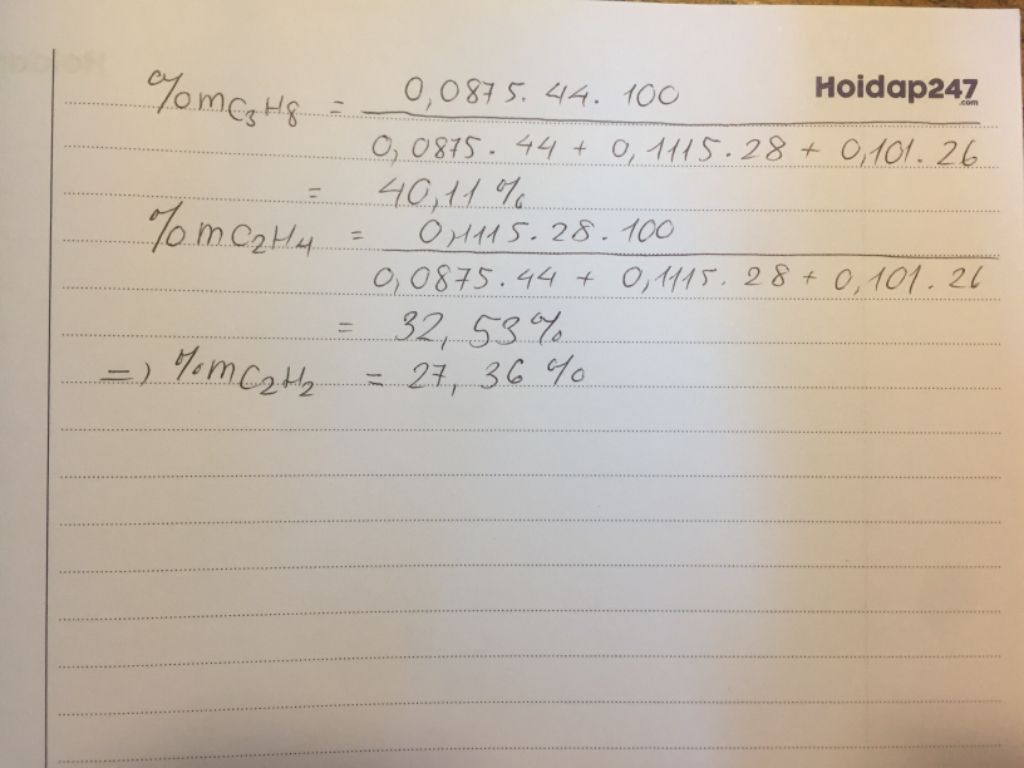 Hoidap247
.com
%mC₃H₈ = 0,0875. 44. 100
0,0875. 44 + 0,1115. 28 + 0,101. 26
= 40,11 %
%mC₂H₄ = 0,1115. 28. 100
0,0875. 44 + 0,1115. 28 + 0,101. 26
= 32,53%
=) %mC₂H₂ = 27, 36 %